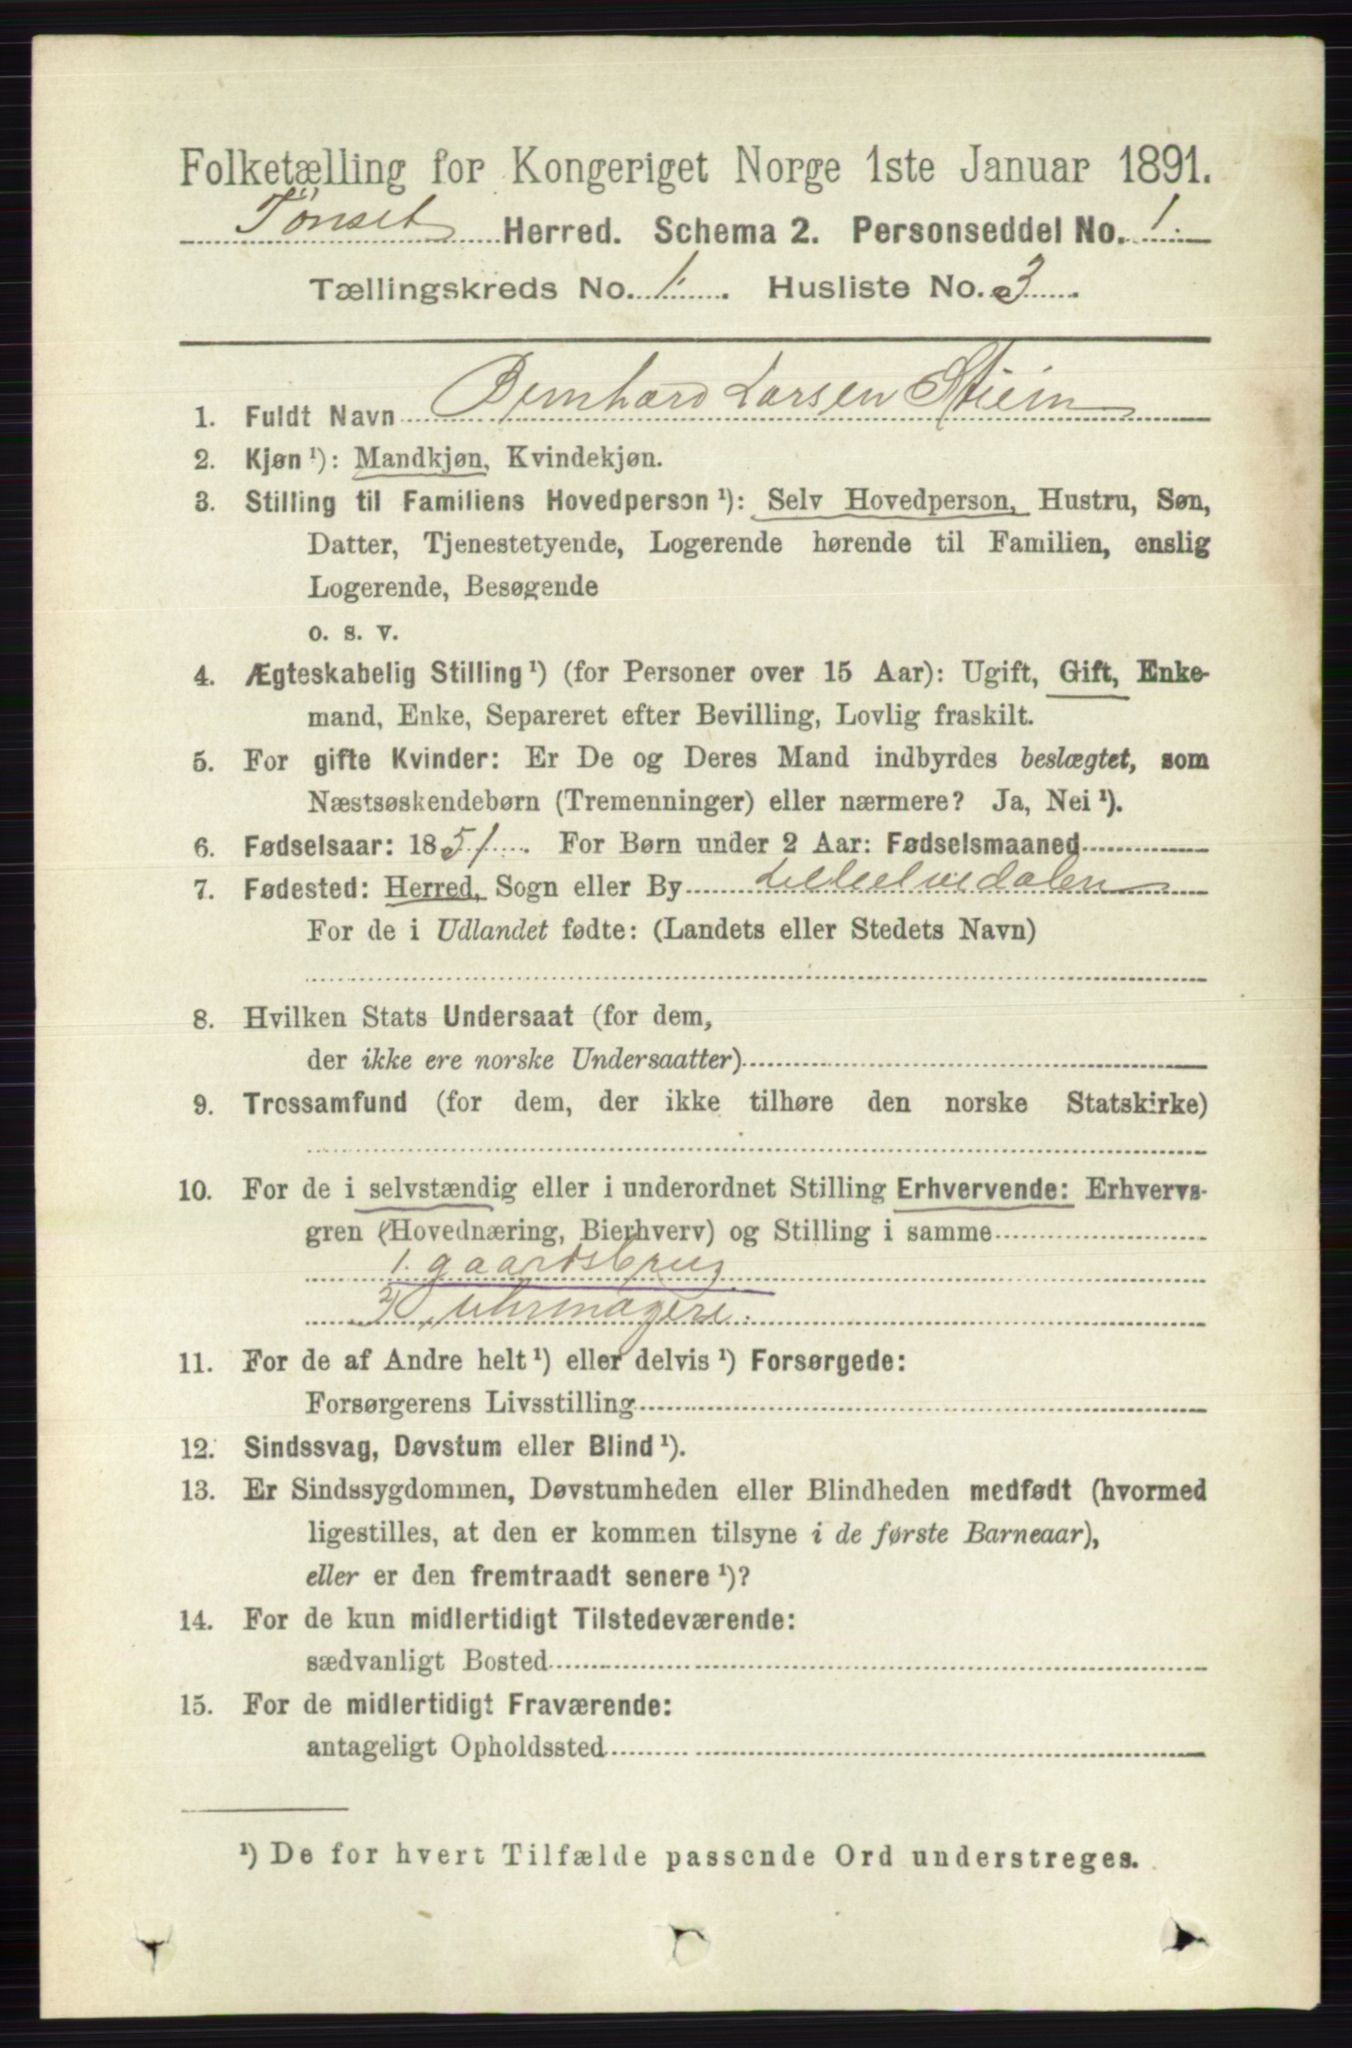 Folketælling for Kongeriget Norge 1ste Januar 1891.
Tönset Herred. Schema 2. Personseddel No. 1.
Tællingskreds No. 1. Husliste No. 3.
1. Fuldt Navn Bernhard Larsen Stiein
2. Kjøn¹): Mandkjøn, Kvindekjøn.
3. Stilling til Familiens Hovedperson¹): Selv Hovedperson, Hustru, Søn,
Datter, Tjenestetyende, Logerende hørende til Familien, enslig
Logerende, Besøgende
o. s. v.
4. Ægteskabelig Stilling¹) (for Personer over 15 Aar): Ugift, Gift, Enke-
mand, Enke, Separeret efter Bevilling, Lovlig fraskilt.
5. For gifte Kvinder: Er De og Deres Mand indbyrdes beslægtet, som
Næstsøskendebørn (Tremenninger) eller nærmere? Ja, Nei¹).
6. Fødselsaar: 1851. For Børn under 2 Aar: Fødselsmaaned
7. Fødested: Herred, Sogn eller By Lilleelvedalen
For de i Udlandet fødte: (Landets eller Stedets Navn)
8. Hvilken Stats Undersaat (for dem,
der ikke ere norske Undersaatter)
9. Trossamfund (for dem, der ikke tilhøre den norske Statskirke)
10. For de i selvstændig eller i underordnet Stilling Erhvervende: Erhvervs-
gren (Hovednæring, Bierhverv) og Stilling i samme
1. gaardsbrug
uhrmageri.
11. For de af Andre helt¹) eller delvis¹) Forsørgede:
Forsørgerens Livsstilling
12. Sindssvag, Døvstum eller Blind¹).
13. Er Sindssygdommen, Døvstumheden eller Blindheden medfødt (hvormed
ligestilles, at den er kommen tilsyne i de første Barneaar),
eller er den fremtraadt senere¹)?
14. For de kun midlertidigt Tilstedeværende:
sædvanligt Bosted
15. For de midlertidigt Fraværende:
antageligt Opholdssted
¹) De for hvert Tilfælde passende Ord understreges.